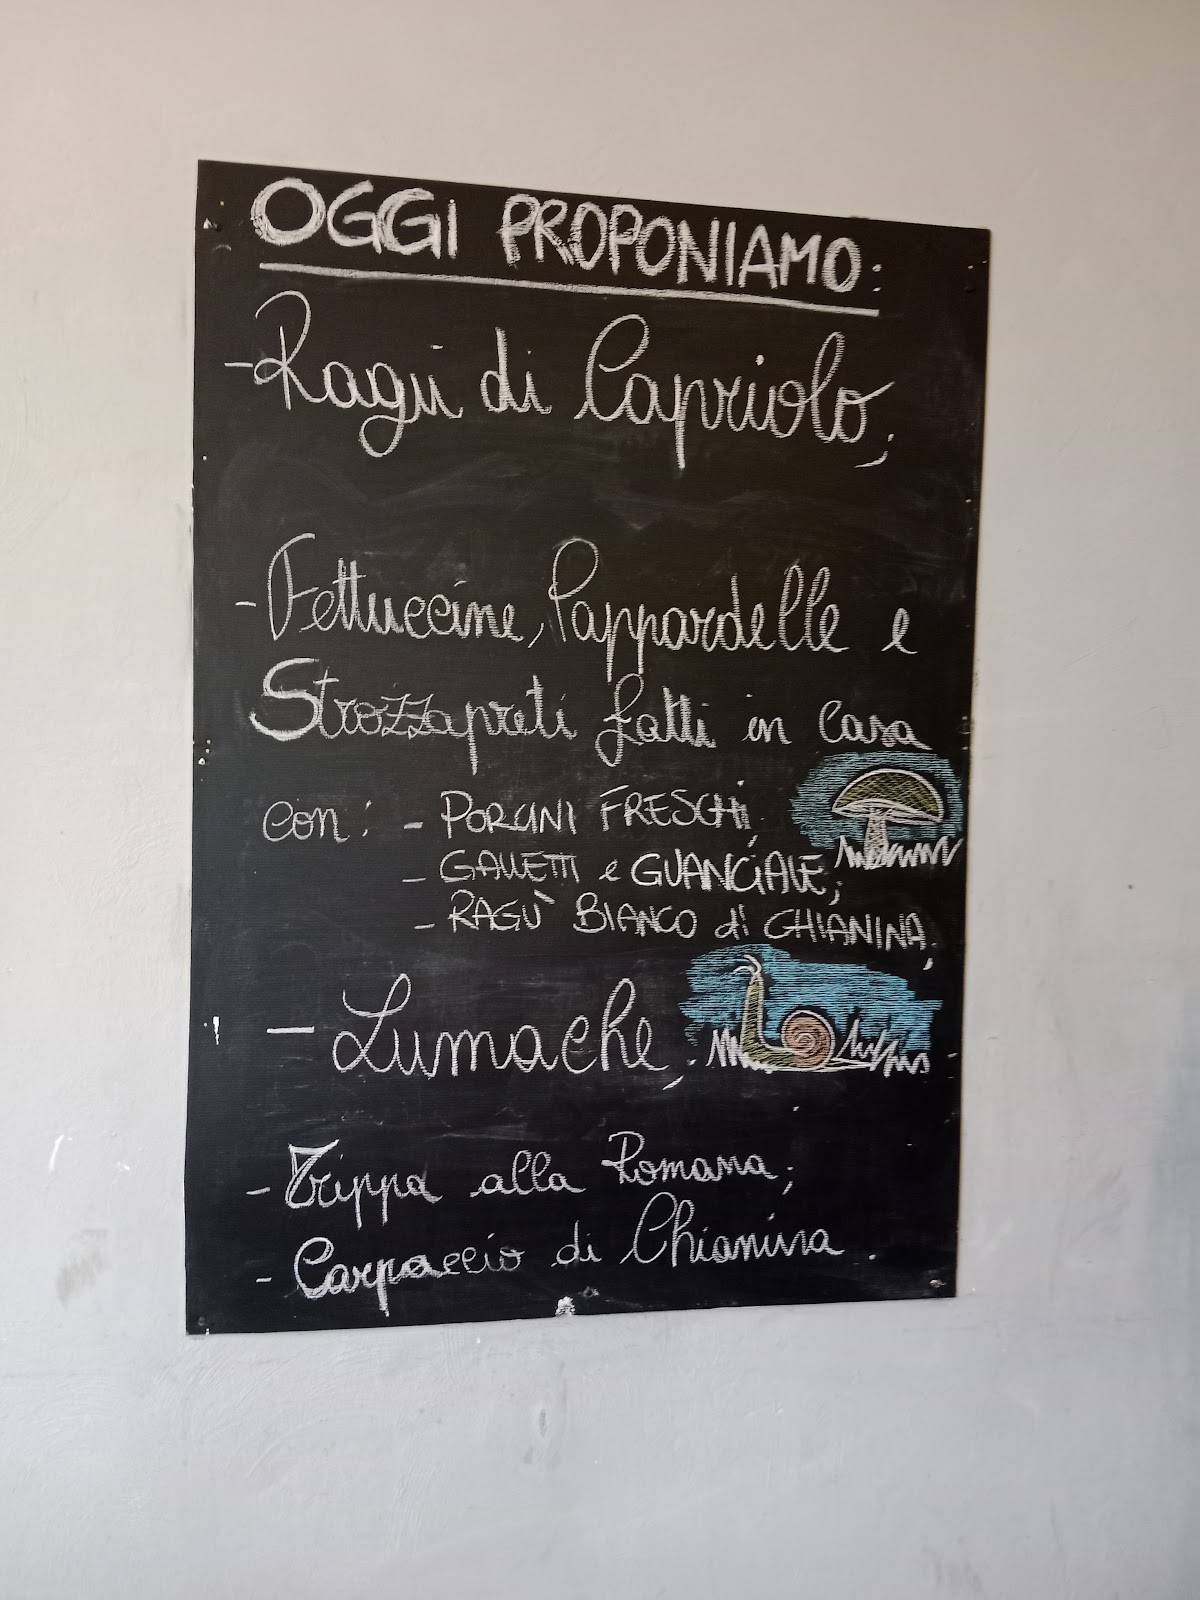 OGGI PROPONIAMO:
-Ragù di Capriolo;
-Fettuccine, Pappardelle e
Strozzapreti fatti in casa
con: - PORCINI FRESCHI;
- GALLETTI e GUANCIALE;
- RAGÙ BIANCO di CHIANINA;
- Lumache;
- Trippa alla Romana;
- Carpaccio di Chianina.